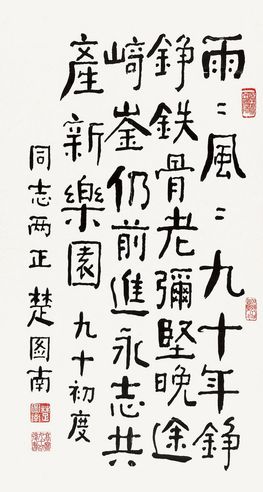 雨〻風〻九十年錚
錚鉄骨老彌堅晚途
崎崟仍前進永志共
產新樂園 九十初度
同志两正 楚图南